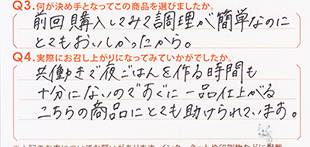 Q3.何が決め手となってこの商品を選びましたか。
前回購入してみて調理が簡単なのに
とてもおいしかったから。
Q4.実際にお召し上がりになってみていかがでしたか。
共働きで夜ごはんを作る時間も
十分にないのですぐに一品仕上がる
こちらの商品にとても助けられています。